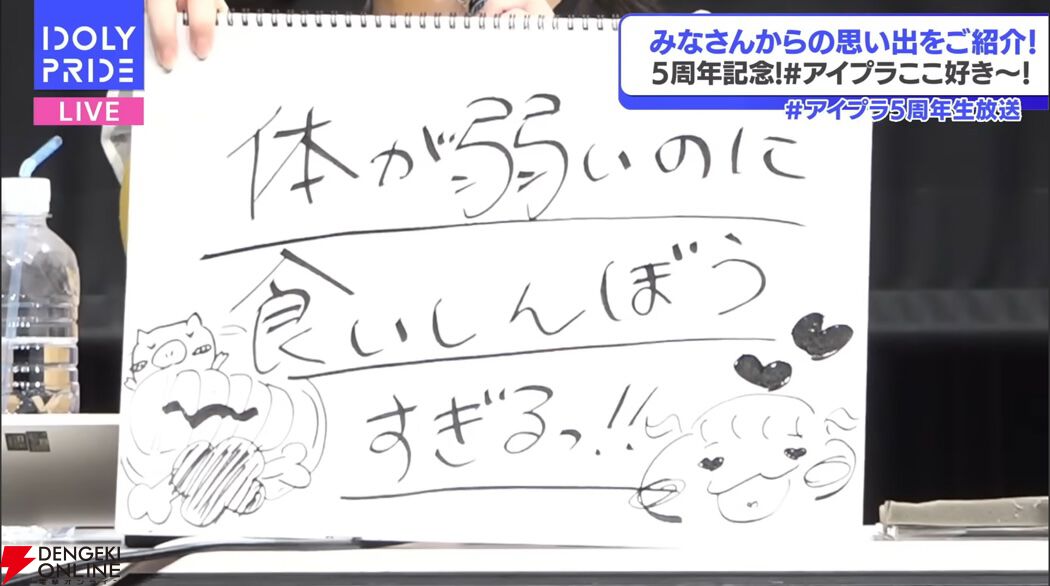 IDOLY
PRIDE
LIVE
みなさんからの思い出をご紹介!
5周年記念!#アイプラここ好き〜!
#アイプラ5周年生放送
体が弱いのに
食いしんぼう
すぎるっ!!
DENGEKI
ONLINE
電撃オンライン